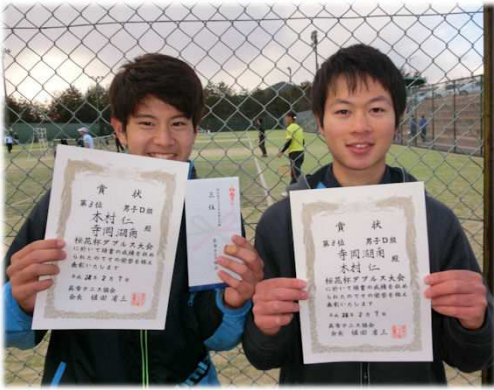 賞状
第3位 男子D級
木村 仁
寺岡湖南 殿
桜花杯ダブルス大会
に於いて頭書の成績を収め
られたのでその栄誉を称え
表彰いたします
平成28年2月7日
テニス協会
会長
三位
賞状
第3位 男子D級
寺岡湖南
木村 仁 殿
桜花杯ダブルス大会
に於いて頭書の成績を収め
られたのでその栄誉を称え
表彰いたします
平成28年2月7日
テニス協会
会長